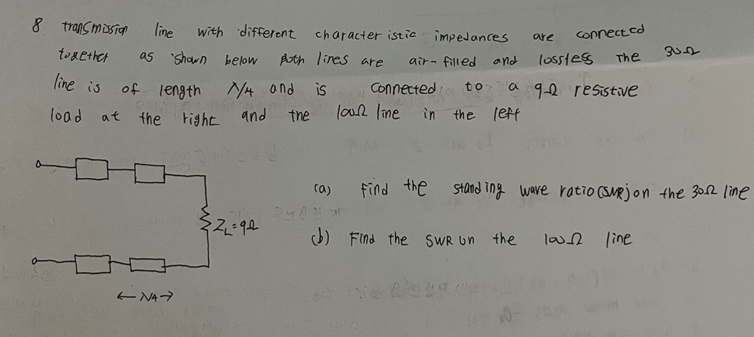 8 transmission line with different characteristic impedances are connected
together as shown below Both lines are air-filled and lossless The 30Ω
line is of length λ/4 and is connected to a 9Ω resistive
load at the right and the 100Ω line in the left
(a) Find the standing wave ratio (SWR) on the 30Ω line
Z_L = 9Ω
(b) Find the SWR on the 100Ω line
← λ/4 →